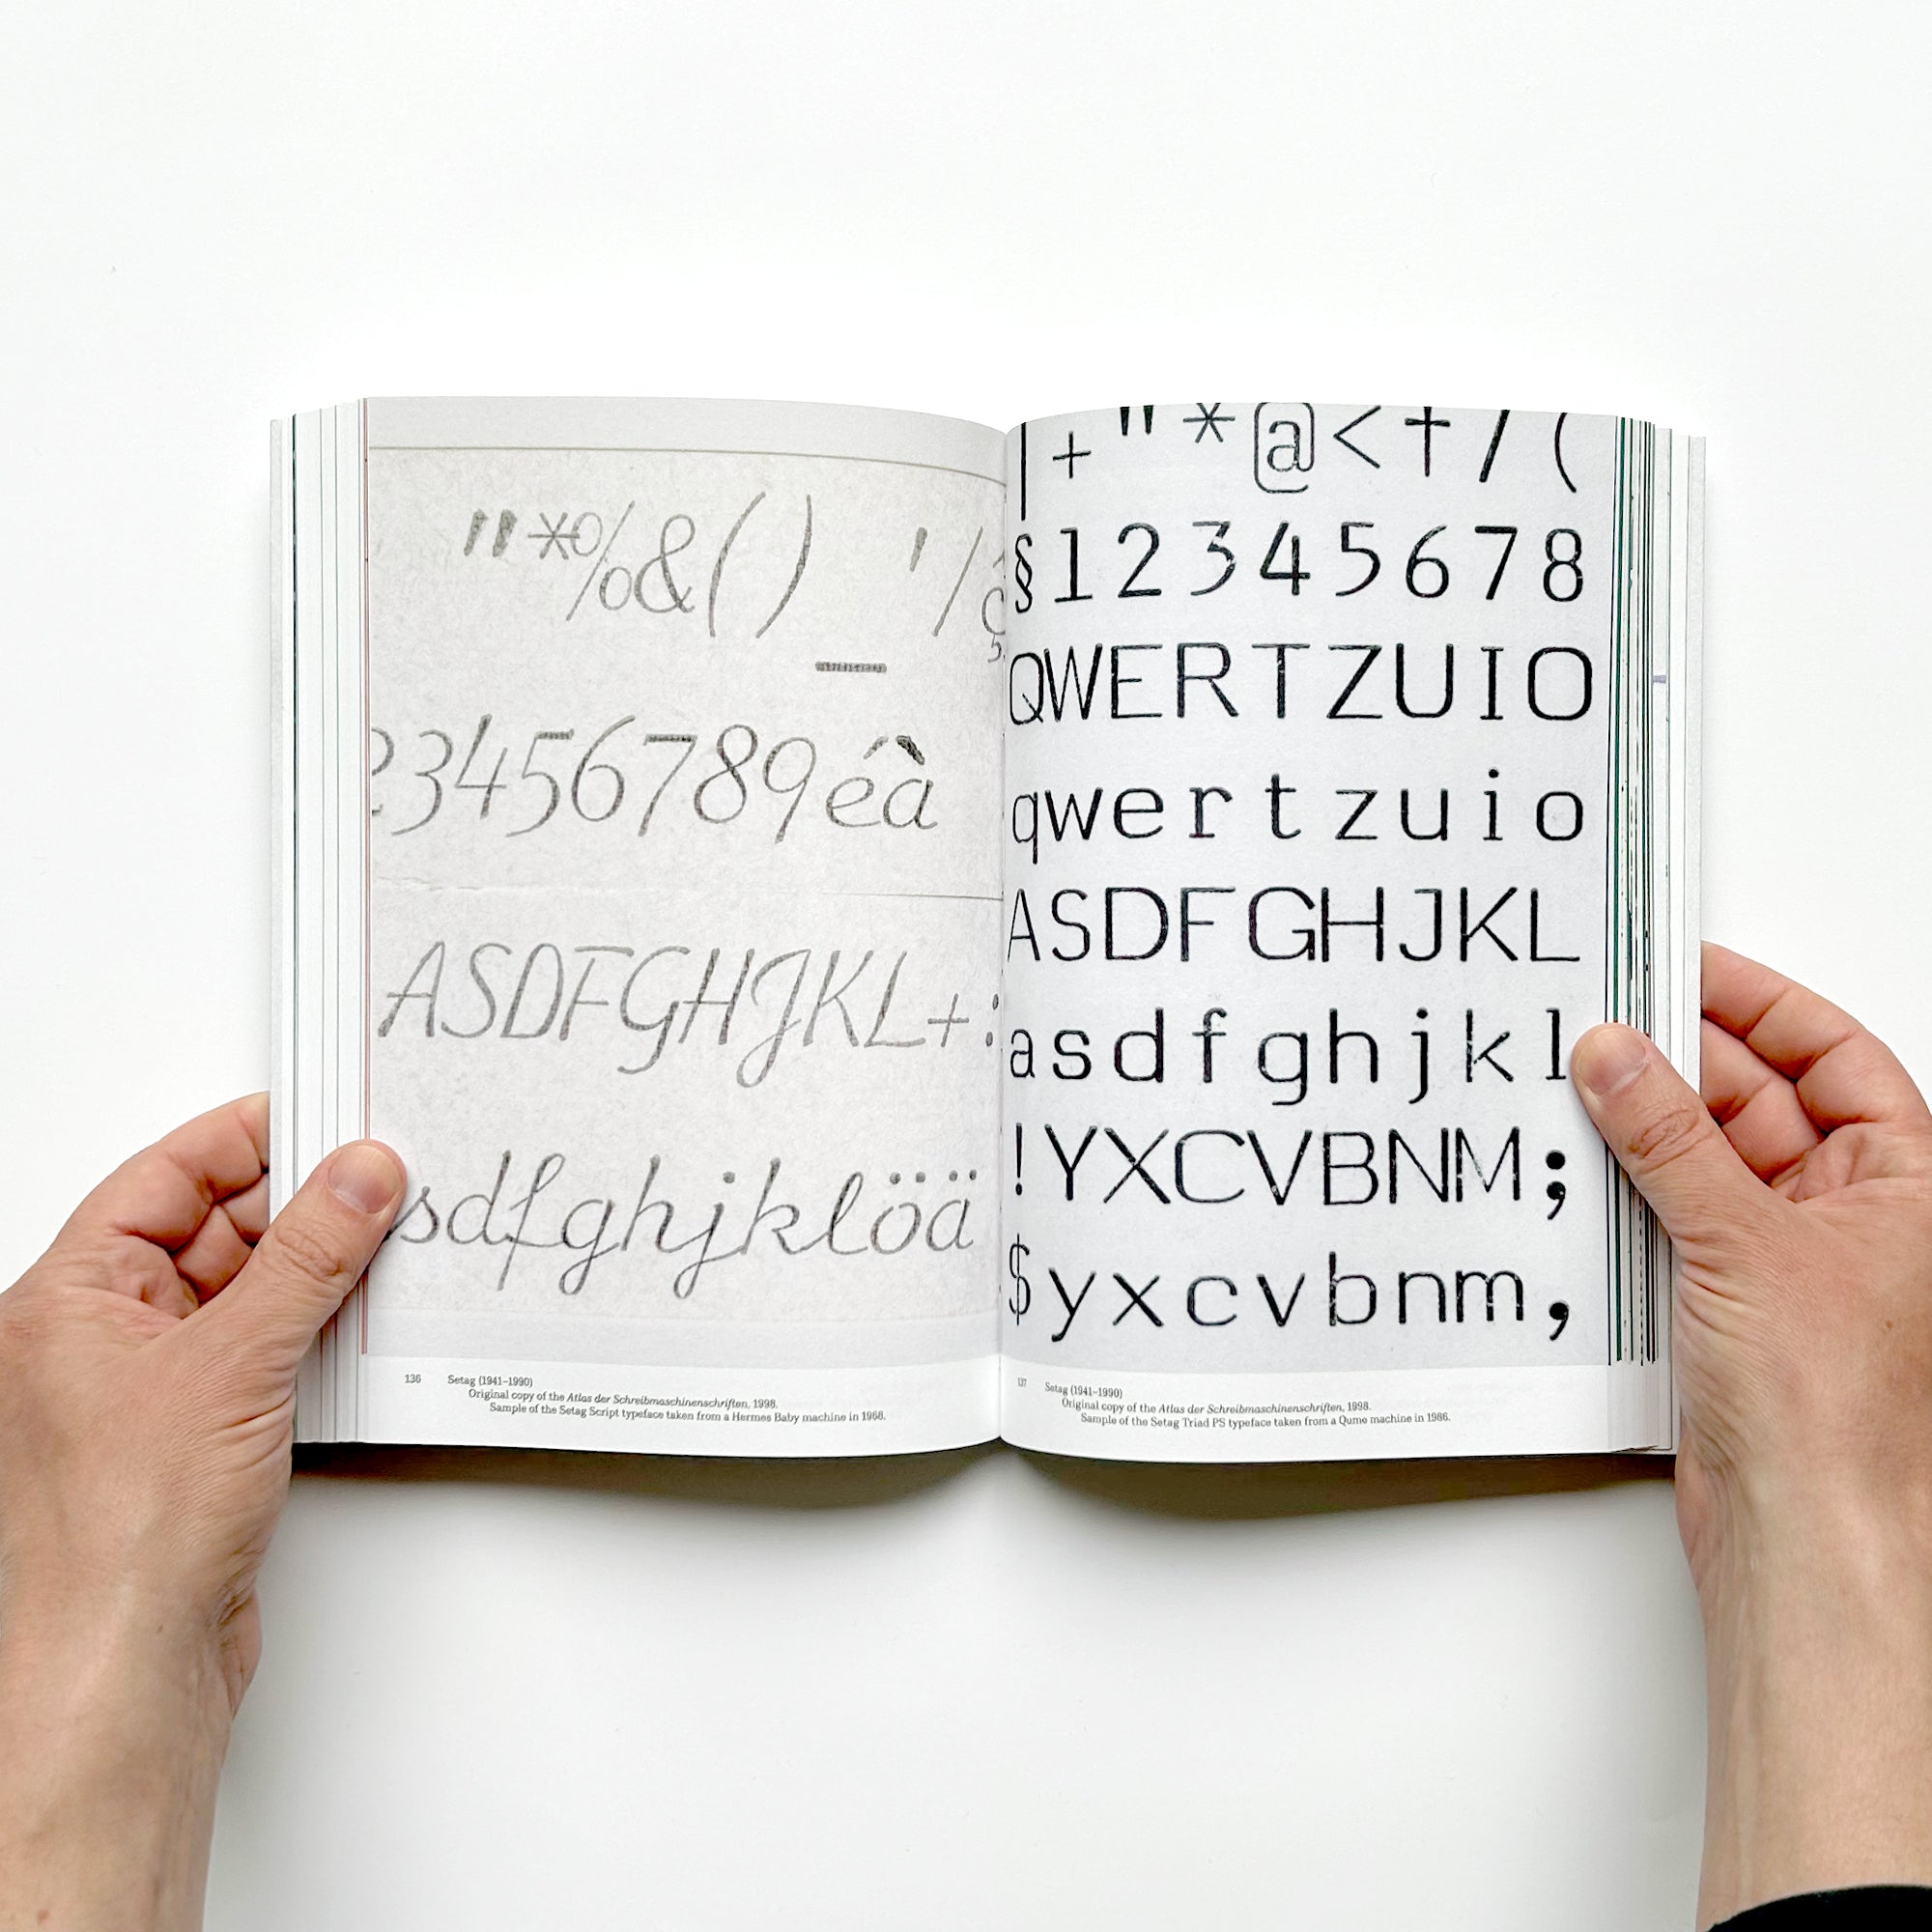 "*%&() '/
_
23456789éà
ASDFGHJKL+:
sdfghjklöä
136 Setag (1941–1990)
Original copy of the Atlas der Schreibmaschinenschriften, 1998.
Sample of the Setag Script typeface taken from a Hermes Baby machine in 1968.
| + " * @ < † / (
§ 1 2 3 4 5 6 7 8
Q W E R T Z U I O
q w e r t z u i o
A S D F G H J K L
a s d f g h j k l
! Y X C V B N M ;
$ y x c v b n m ,
137 Setag (1941–1990)
Original copy of the Atlas der Schreibmaschinenschriften, 1998.
Sample of the Setag Triad PS typeface taken from a Qume machine in 1986.